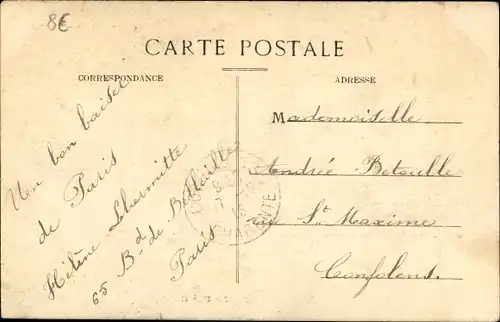 8€
CARTE POSTALE
CORRESPONDANCE
ADRESSE
Un bon baiser
de Paris
Hélène Lhermitte
65 Bd de Belleville
Paris
Mademoiselle
Andrée Betoulle
rue St Maxime
Confolens.